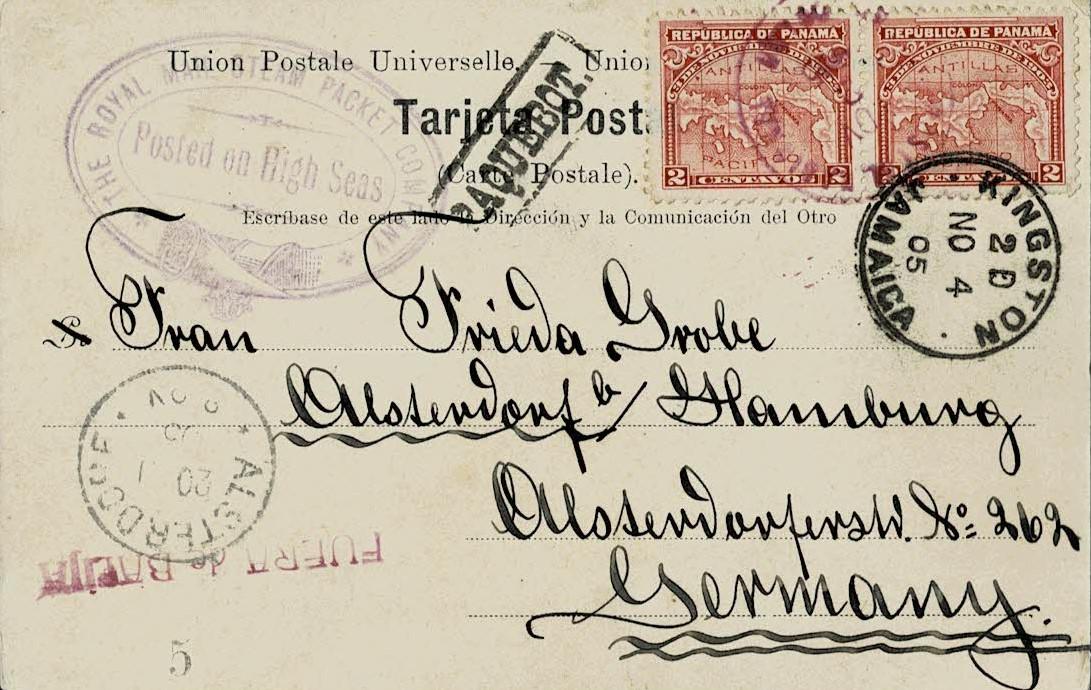 Union Postale Universelle. — Union
Tarjeta Posta
(Carte Postale).
Escríbase de este lado la Dirección y la Comunicación del Otro
THE ROYAL MAIL STEAM PACKET COMPANY
Posted on High Seas
PAQUEBOT.
REPÚBLICA DE PANAMA
3 DE NOVIEMBRE DE 1903
ANTILLAS
COLON
PACIFICO
2 CENTAVOS 2
REPÚBLICA DE PANAMA
3 DE NOVIEMBRE DE 1903
ANTILLAS
COLON
2 CENTAVOS 2
KINGSTON JAMAICA
2 D
NO 4
05
Frau Frieda Grobe
Alsterdorf b/ Hamburg
Alsterdorferstr. No. 262
Germany.
ALSTERDORF
20
FUERA de BALIJA
5